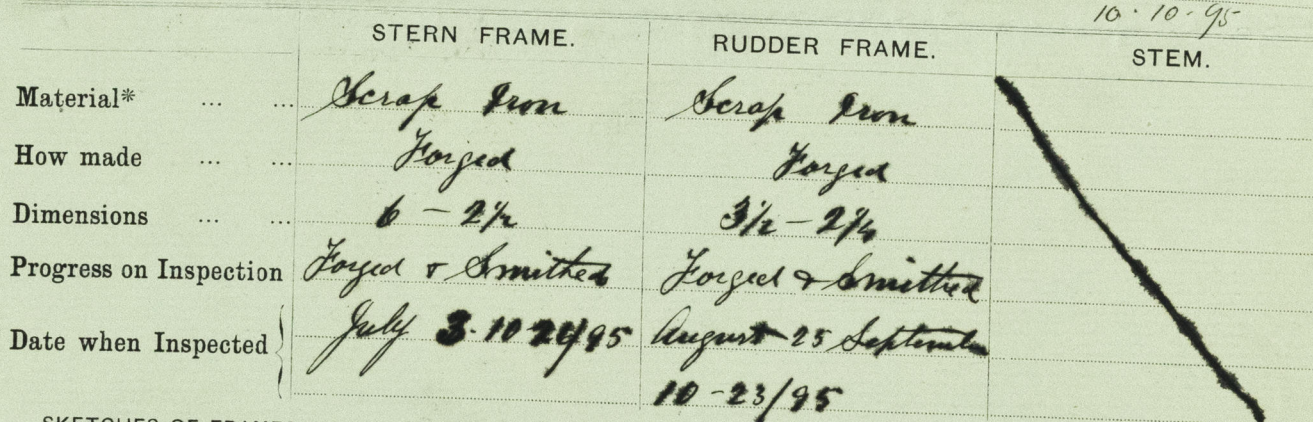 10·10·95
STERN FRAME. RUDDER FRAME. STEM.
Material* ... ... Scrap Iron Scrap Iron
How made ... ... Forged Forged
Dimensions ... ... 6 - 2½ 3½ - 2¼
Progress on Inspection Forged & Smithed Forged & Smithed
Date when Inspected July 3·10 /95 August 25 September
10-23/95
SKETCHES OF